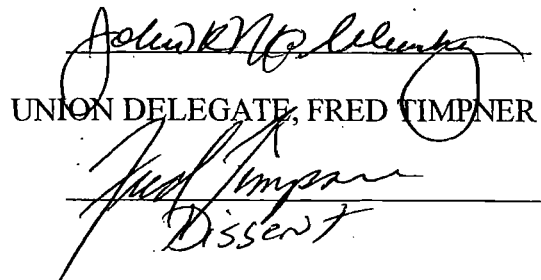 John R
UNION DELEGATE, FRED TIMPNER
Fred Timpner
Dissent